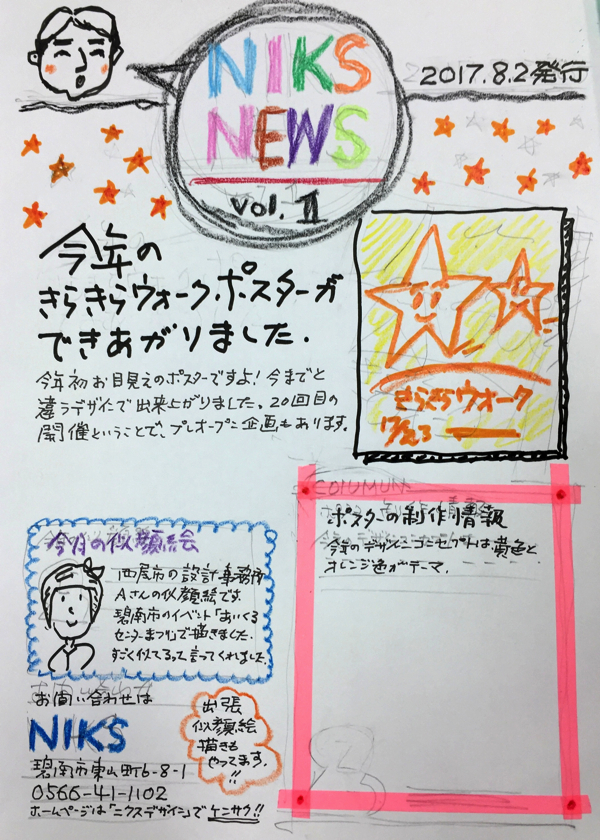 NIKS
NEWS
vol. II
2017.8.2発行
今年の
きらきらウォーク.ポスターが
できあがりました.
今年初お目見えのポスターですよ!今までと
違うデザインで出来上がりました。20回目の
開催ということで、プレオープン企画もあります。
きらきらウォーク
COLUMUN
ポスターの制作情報
今年のデザインコンセプトは黄色と
オレンジ色がテーマ.
今月の似顔絵
西尾市の設計事務所
Aさんの似顔絵です.
碧南市のイベント「あいくる
センターまつり」で描きました.
すごく似てるって言ってくれました.
お問い合わせは
NIKS
碧南市東山町6-8-1
0566-41-1102
ホームページは「ニクスデザイン」でケンサク!!
出張
似顔絵
描きも
やってます.
!!